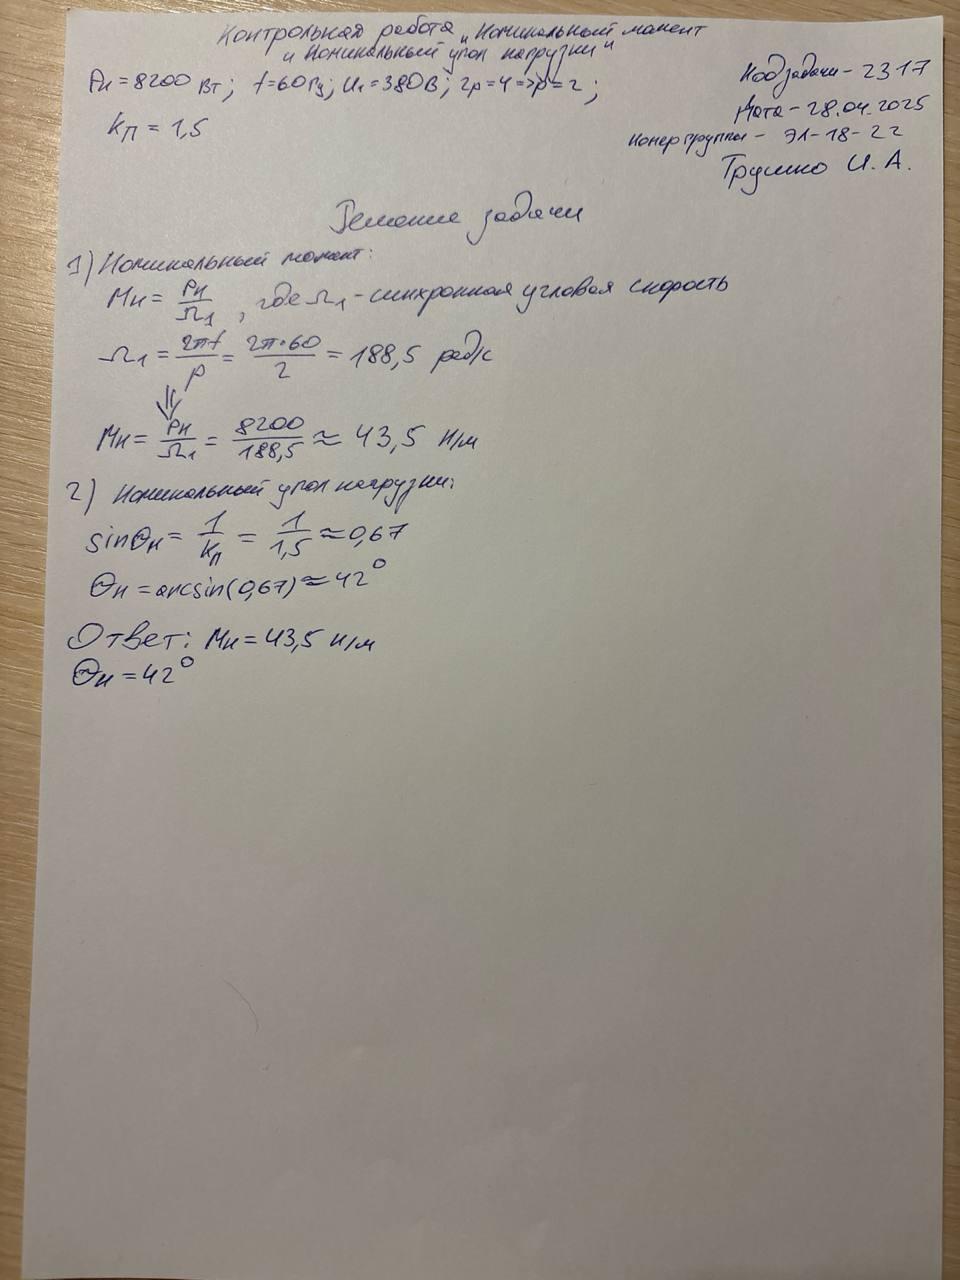 Контрольная работа „Номинальный момент
и Номинальный угол нагрузки"
Pн = 8200 Вт; f=60 Гц; U1 = 380В; 2p=4 =>p=2;
Kп = 1,5
Код задачи - 2317
Дата - 28.04.2025
Номер группы - Э1-18-22
Трушко И. А.
Решение задачи
1) Номинальный момент:
Mн = Pн/Ω1, где Ω1 - синхронная угловая скорость
Ω1 = 2πf/p = 2π·60/2 = 188,5 рад/с
⇓
Mн = Pн/Ω1 = 8200/188,5 ≈ 43,5 Н/м
2) Номинальный угол нагрузки:
sinΘн = 1/Kп = 1/1,5 ≈ 0,67
Θн = arcsin(0,67) ≈ 42°
Ответ: Mн = 43,5 н/м
Θн = 42°